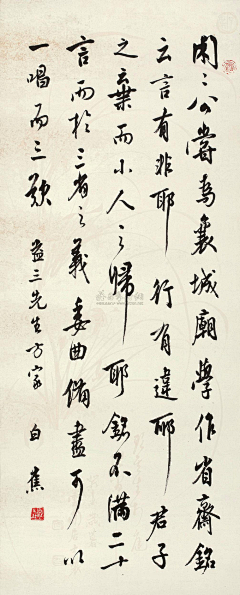 閑〻公嘗為襄城廟學作省齋銘
云言有非耶行有違耶君子
之棄而小人之歸耶銘不滿二十
言而於三省之義委曲備盡可以
一唱而三歎 益三先生方家 白蕉